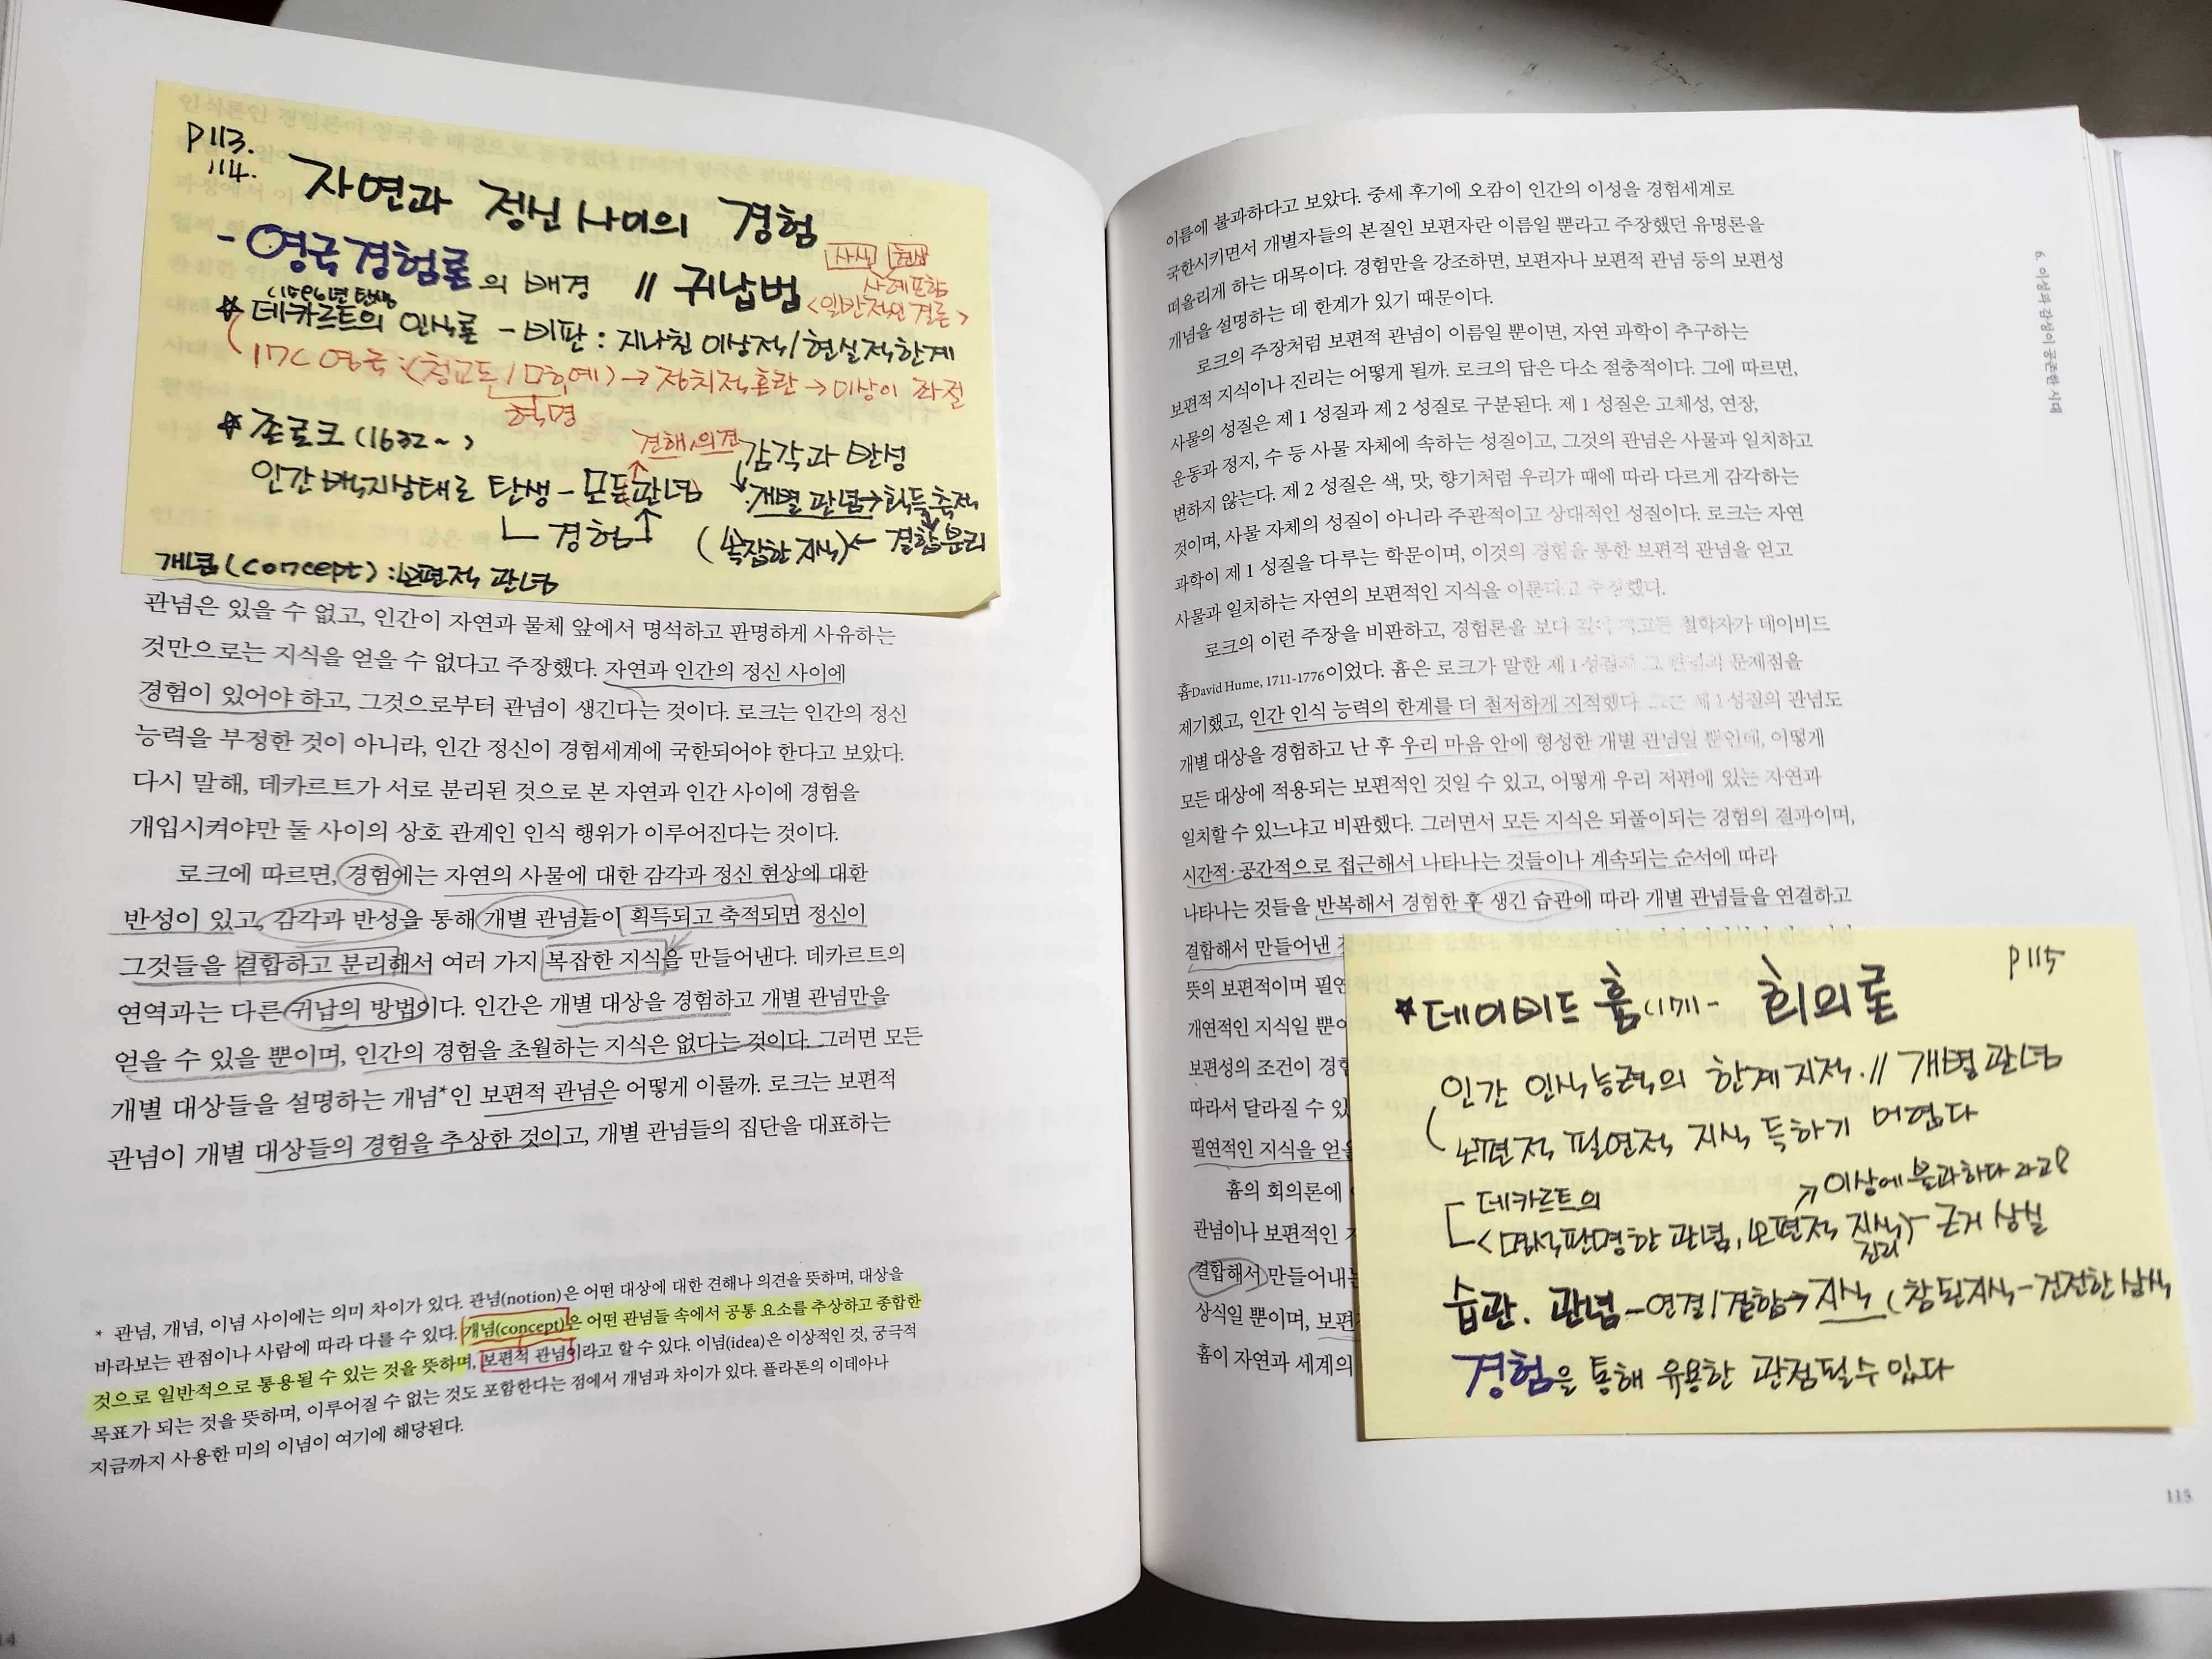 p113.
114.
자연과 정신 사이의 경험
- 영국경험론의 배경 // 귀납법
사실 현상
사례포함
<일반적인 결론>
(1596년 탄생
* 데카르트의 인식론 - 비판 : 지나친 이상적/현실적한계
17C 영국 :(청교도/명예) → 정치적혼란 → 이상이 좌절
혁명
* 존로크 (1632~)
견해, 의견
감각과 반성
인간백지상태로 탄생 - 모든관념
개별 관념→획득축적
경험
(복잡한 지식)← 결합분리
개념(concept) : 보편적 관념
관념은 있을 수 없고, 인간이 자연과 물체 앞에서 명석하고 판명하게 사유하는
것만으로는 지식을 얻을 수 없다고 주장했다. 자연과 인간의 정신 사이에
경험이 있어야 하고, 그것으로부터 관념이 생긴다는 것이다. 로크는 인간의 정신
능력을 부정한 것이 아니라, 인간 정신이 경험세계에 국한되어야 한다고 보았다.
다시 말해, 데카르트가 서로 분리된 것으로 본 자연과 인간 사이에 경험을
개입시켜야만 둘 사이의 상호 관계인 인식 행위가 이루어진다는 것이다.
로크에 따르면, 경험에는 자연의 사물에 대한 감각과 정신 현상에 대한
반성이 있고, 감각과 반성을 통해 개별 관념들이 획득되고 축적되면 정신이
그것들을 결합하고 분리해서 여러 가지 복잡한 지식을 만들어낸다. 데카르트의
연역과는 다른 귀납의 방법이다. 인간은 개별 대상을 경험하고 개별 관념만을
얻을 수 있을 뿐이며, 인간의 경험을 초월하는 지식은 없다는 것이다. 그러면 모든
개별 대상들을 설명하는 개념*인 보편적 관념은 어떻게 이룰까. 로크는 보편적
관념이 개별 대상들의 경험을 추상한 것이고, 개별 관념들의 집단을 대표하는
* 관념, 개념, 이념 사이에는 의미 차이가 있다. 관념(notion)은 어떤 대상에 대한 견해나 의견을 뜻하며, 대상을
바라보는 관점이나 사람에 따라 다를 수 있다. 개념(concept)은 어떤 관념들 속에서 공통 요소를 추상하고 종합한
것으로 일반적으로 통용될 수 있는 것을 뜻하며, 보편적 관념이라고 할 수 있다. 이념(idea)은 이상적인 것, 궁극적
목표가 되는 것을 뜻하며, 이루어질 수 없는 것도 포함한다는 점에서 개념과 차이가 있다. 플라톤의 이데아나
지금까지 사용한 미의 이념이 여기에 해당된다.
14
6. 이성과 감성이 공존한 시대
이름에 불과하다고 보았다. 중세 후기에 오캄이 인간의 이성을 경험세계로
국한시키면서 개별자들의 본질인 보편자란 이름일 뿐라고 주장했던 유명론을
떠올리게 하는 대목이다. 경험만을 강조하면, 보편자나 보편적 관념 등의 보편성
개념을 설명하는 데 한계가 있기 때문이다.
로크의 주장처럼 보편적 관념이 이름일 뿐이면, 자연 과학이 추구하는
보편적 지식이나 진리는 어떻게 될까. 로크의 답은 다소 절충적이다. 그에 따르면,
사물의 성질은 제 1 성질과 제 2 성질로 구분된다. 제 1 성질은 고체성, 연장,
운동과 정지, 수 등 사물 자체에 속하는 성질이고, 그것의 관념은 사물과 일치하고
변하지 않는다. 제 2 성질은 색, 맛, 향기처럼 우리가 때에 따라 다르게 감각하는
것이며, 사물 자체의 성질이 아니라 주관적이고 상대적인 성질이다. 로크는 자연
과학이 제 1 성질을 다루는 학문이며, 이것의 경험을 통한 보편적 관념을 얻고
사물과 일치하는 자연의 보편적인 지식을 이룬다고 주장했다.
로크의 이런 주장을 비판하고, 경험론을 보다 깊이 파고든 철학자가 데이비드
흄David Hume, 1711-1776이었다. 흄은 로크가 말한 제 1 성질과 그 관념의 문제점을
제기했고, 인간 인식 능력의 한계를 더 철저하게 지적했다. 제 1 성질의 관념도
개별 대상을 경험하고 난 후 우리 마음 안에 형성한 개별 관념일 뿐인데, 어떻게
모든 대상에 적용되는 보편적인 것일 수 있고, 어떻게 우리 저편에 있는 자연과
일치할 수 있느냐고 비판했다. 그러면서 모든 지식은 되풀이되는 경험의 결과이며,
시간적·공간적으로 접근해서 나타나는 것들이나 계속되는 순서에 따라
나타나는 것들을 반복해서 경험한 후 생긴 습관에 따라 개별 관념들을 연결하고
결합해서 만들어낸
뜻의 보편적이며 필연
개연적인 지식일 뿐
보편성의 조건이 경험
따라서 달라질 수 있
필연적인 지식을 얻을
흄의 회의론에
관념이나 보편적인
결합해서 만들어내는
상식일 뿐이며, 보편
흄이 자연과 세계의
p115
* 데이비드 흄(1711- 회의론
인간 인식능력의 한계지적.// 개별관념
보편적 필연적 지식 득하기 어렵다
데카르트의
↗이상에 불과하다 라고?
<명석판명한 관념, 보편적 지식>- 근거 상실
진리
습관. 관념 - 연결/결합→ 지식 (참된지식-건전한상식
경험을 통해 유용한 관점될수있다
115